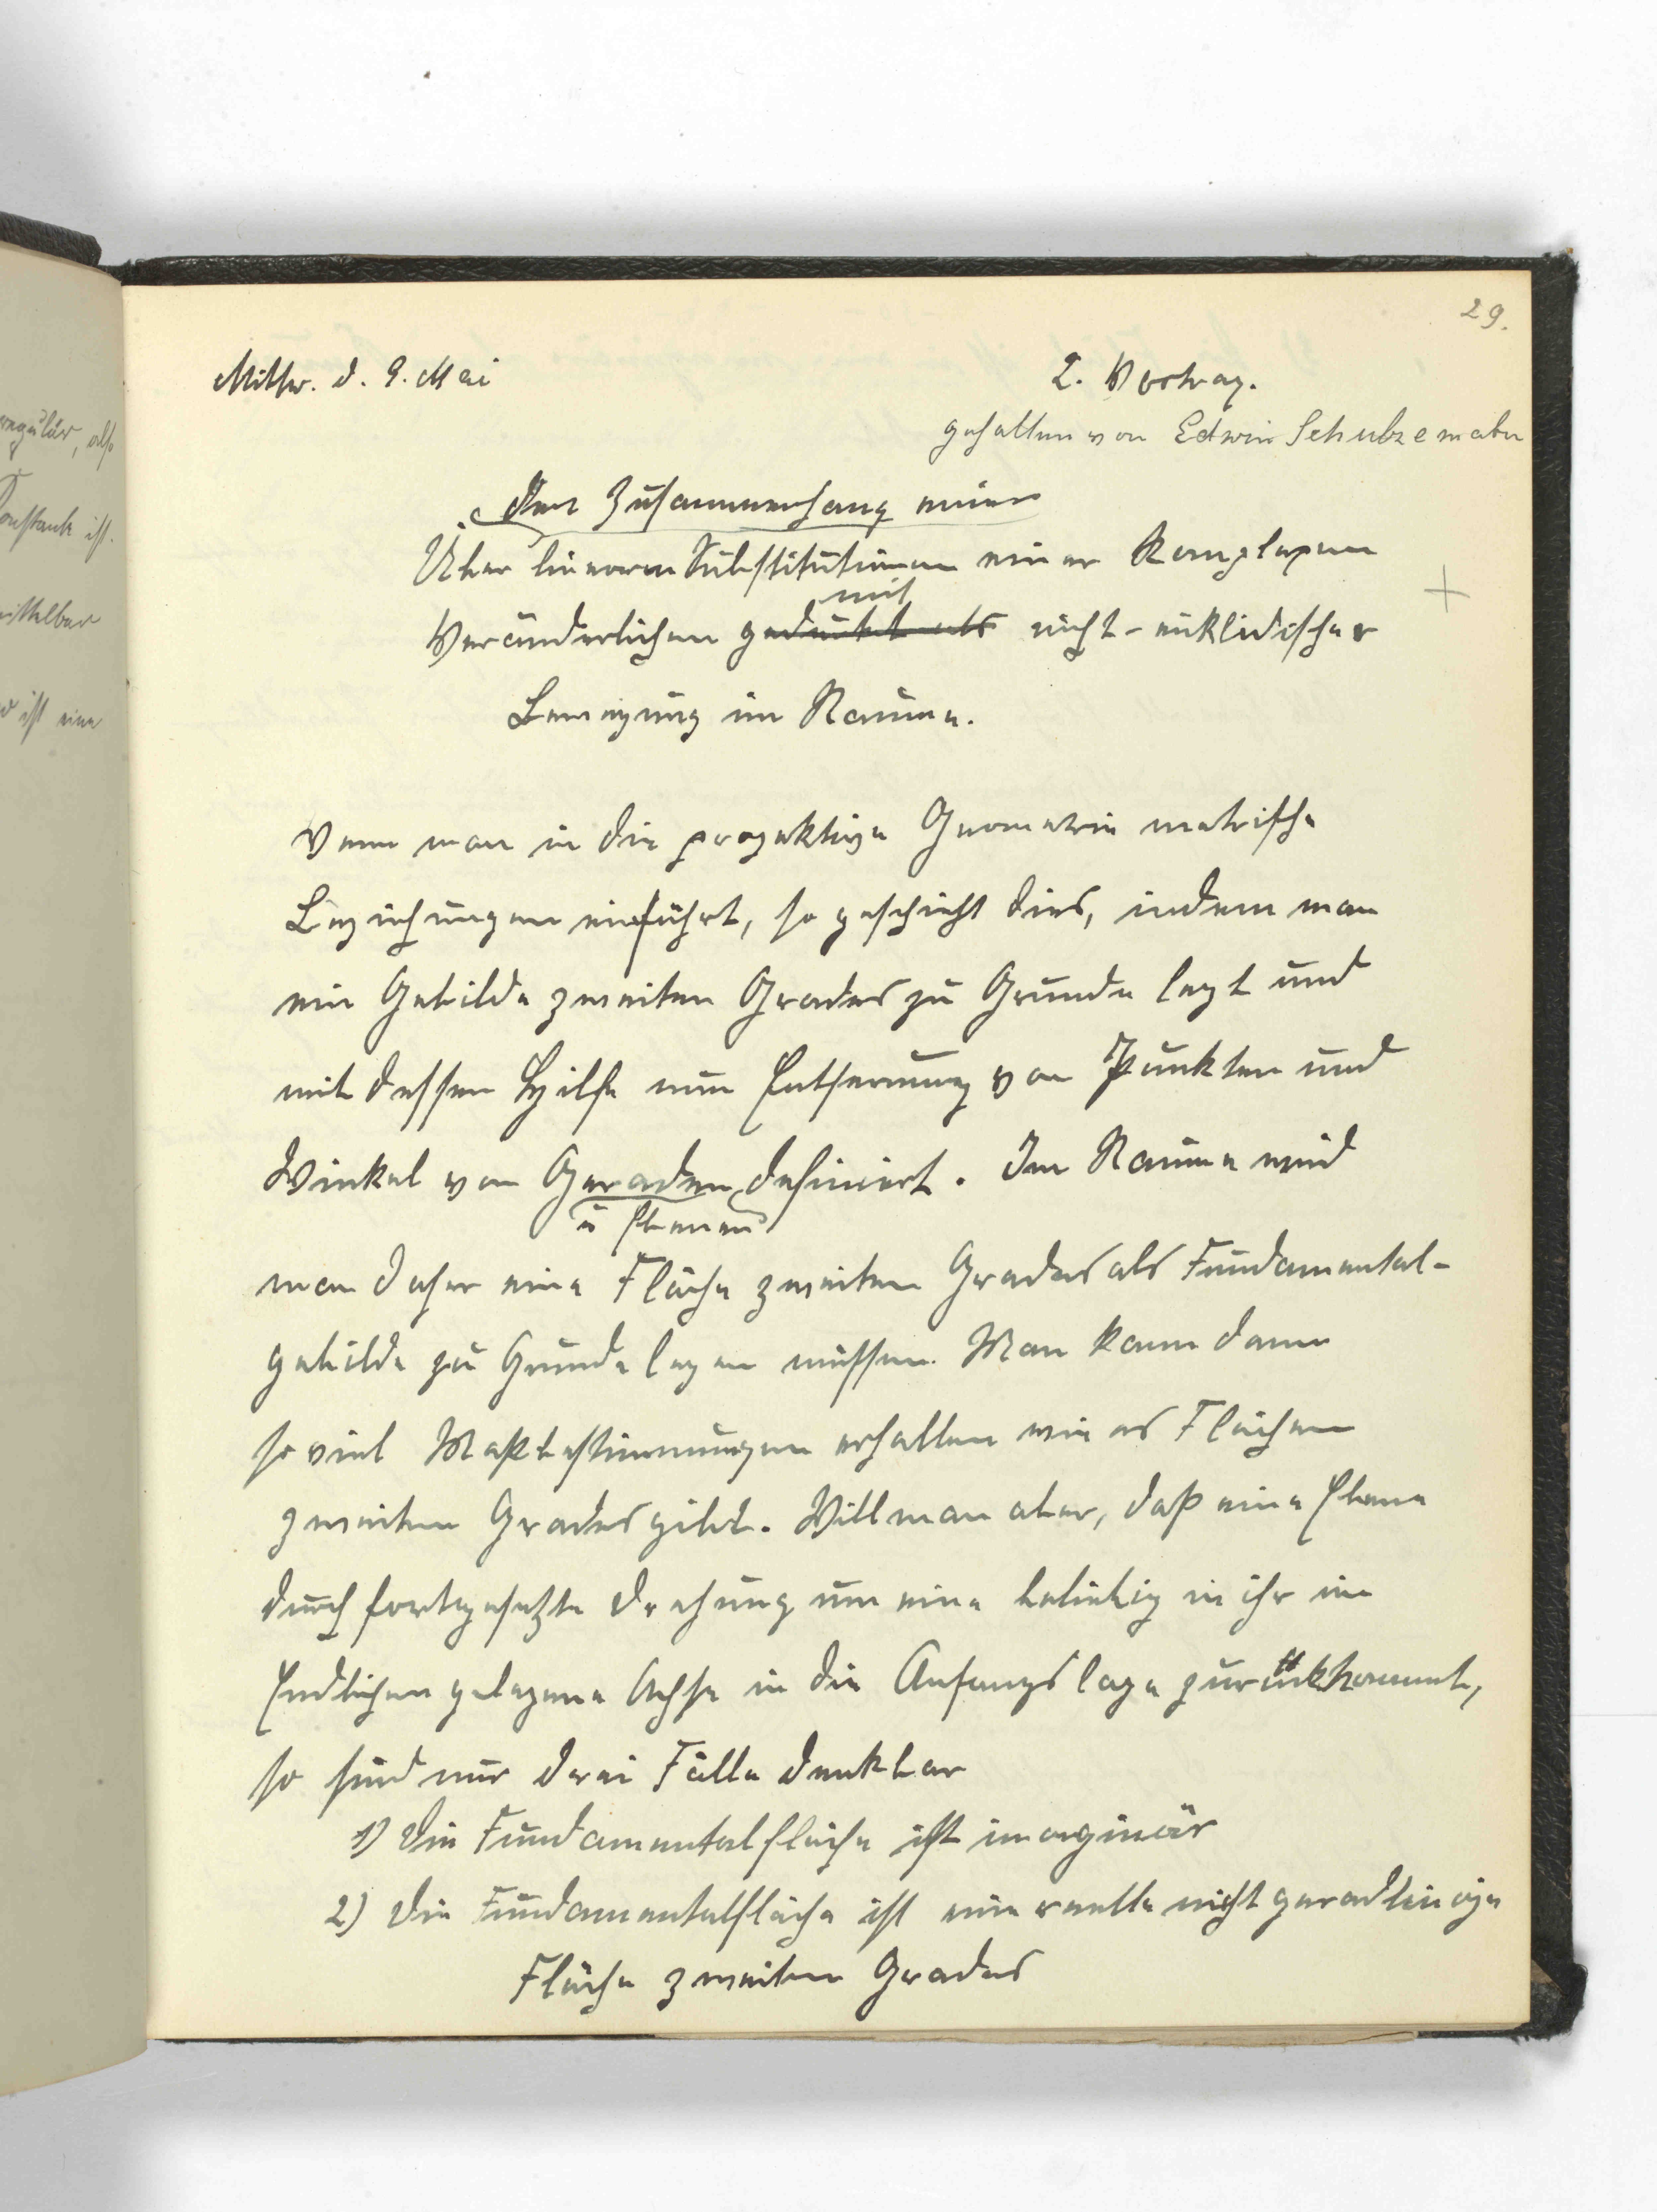 29.
Mittw. d. 9. Mai
2. Vortrag.
gehalten von Edwin
den Zusammenhang einer
Über linearen Substitutionen einer komplexen
mit
Veränderlichen gedeutet als nicht-euklidischer
Bewegung im Raume.
Wenn man in die projektive Geometrie metrische
Beziehungen einführt, so geschieht dies, indem man
ein Gebilde zweiten Grades zu Grunde legt und
mit dessen Hilfe nun Entfernung von Punkten und
Winkel von Geraden definiert. Im Raume wird
u Ebenen
man daher eine Fläche zweiten Grades als Fundamental-
gebilde zu Grunde legen müssen. Man kann dann
so viel Maßbestimmungen erhalten wie es Flächen
zweiten Grades gibt. Will man aber, daß eine Ebene
durch fortgesetzte Drehung um eine beliebig in ihr im
Endlichen gelegene Achse in die Anfangslage zurückkommt,
so sind nur drei Fälle denkbar
1) Die Fundamentalfläche ist imaginär
2) Die Fundamentalfläche ist eine reelle nicht geradlinige
Fläche zweiten Grades
regulär, also
Konstante ist.
mittelbar
ist eine